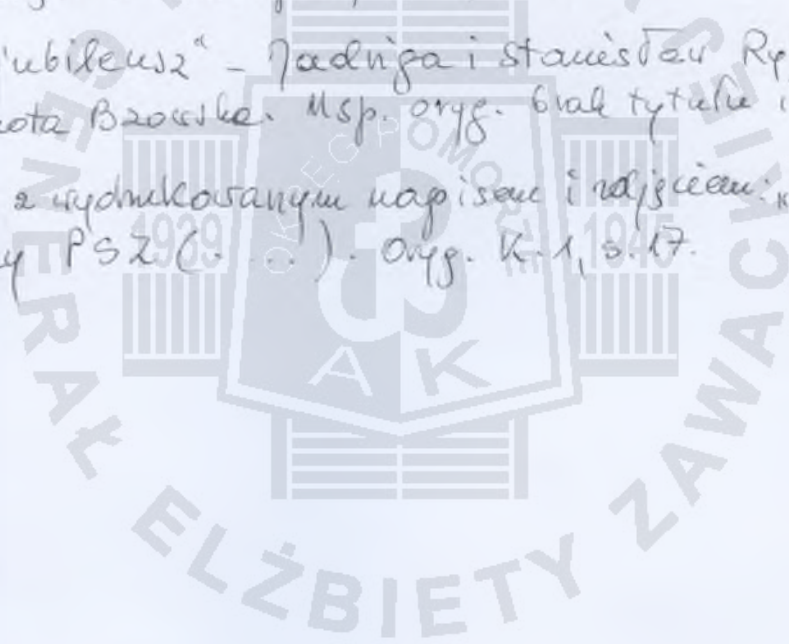 ubileusz" – Jadwiga i Stanisław Ry
ota Bzowska. Msp. oryg. brak tytułu i
z wydrukowanym napisem i zdjęciem: „
y PSZ (. ...). Oryg. K. 1, s. 17.
OKRĘG POMORZE
1939
1945
AK
GENERAŁ ELŻBIETY ZAWACKIE